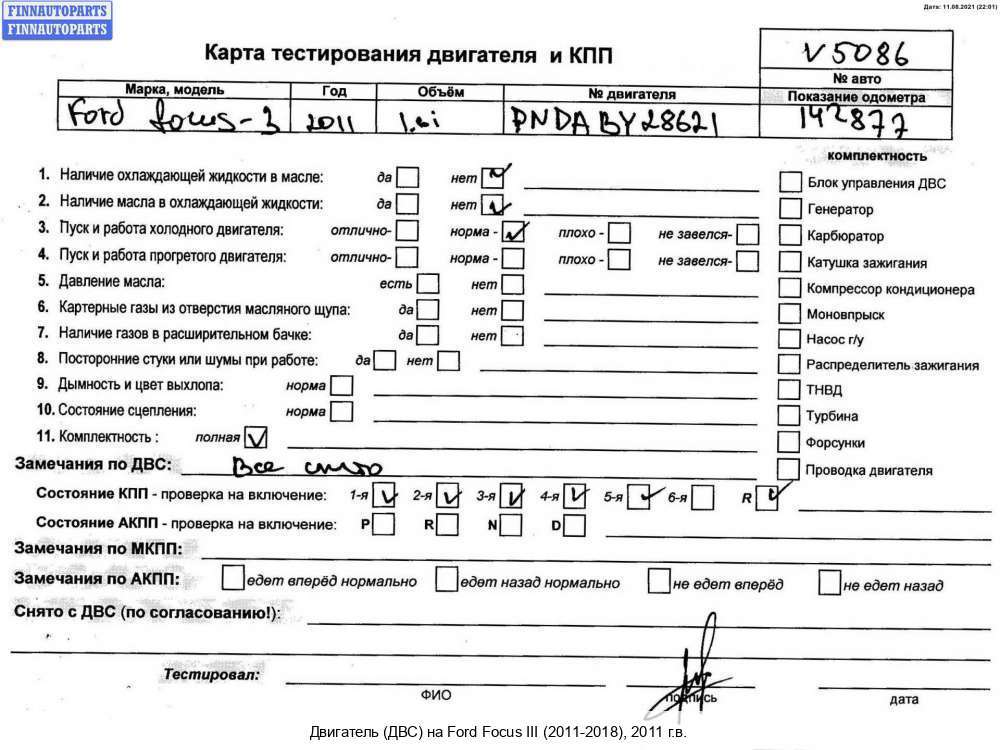 FINNAUTOPARTS
FINNAUTOPARTS
Дата: 11.08.2021 (22:01)
Карта тестирования двигателя и КПП
V5086
№ авто
Марка, модель Год Объём № двигателя Показание одометра
Ford focus-3 2011 1.6i PNDA BY28621 142877
комплектность
1. Наличие охлаждающей жидкости в масле: да нет
Блок управления ДВС
2. Наличие масла в охлаждающей жидкости: да нет
Генератор
3. Пуск и работа холодного двигателя: отлично- норма - плохо - не завелся-
Карбюратор
4. Пуск и работа прогретого двигателя: отлично- норма - плохо - не завелся-
Катушка зажигания
5. Давление масла: есть нет
Компрессор кондиционера
6. Картерные газы из отверстия масляного щупа: да нет
Моновпрыск
7. Наличие газов в расширительном бачке: да нет
Насос г/у
8. Посторонние стуки или шумы при работе: да нет
Распределитель зажигания
9. Дымность и цвет выхлопа: норма
ТНВД
10. Состояние сцепления: норма
Турбина
11. Комплектность : полная
Форсунки
Замечания по ДВС: Все снято
Проводка двигателя
Состояние КПП - проверка на включение: 1-я 2-я 3-я 4-я 5-я 6-я R
Состояние АКПП - проверка на включение: P R N D
Замечания по МКПП:
Замечания по АКПП: едет вперёд нормально едет назад нормально не едет вперёд не едет назад
Снято с ДВС (по согласованию!):
Тестировал:
ФИО подпись дата
Двигатель (ДВС) на Ford Focus III (2011-2018), 2011 г.в.